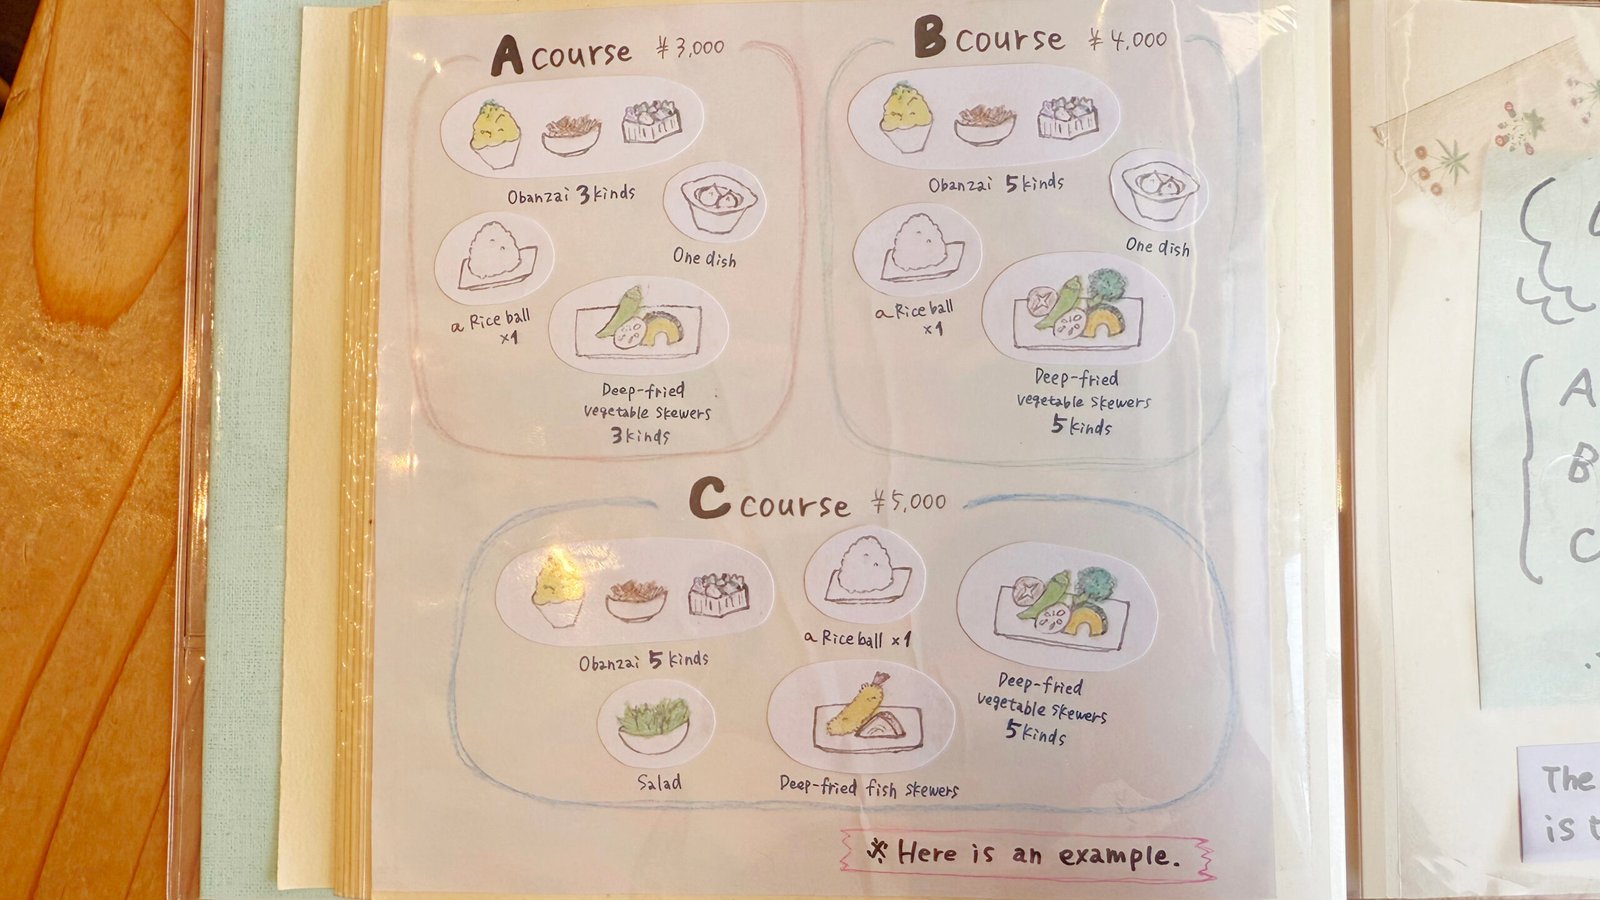 A course ¥3,000
Obanzai 3 kinds
One dish
a Rice ball
×1
Deep-fried
vegetable skewers
3 kinds
B course ¥4,000
Obanzai 5 kinds
One dish
a Rice ball
×1
Deep-fried
vegetable skewers
5 kinds
C course ¥5,000
Obanzai 5 kinds
a Rice ball ×1
Deep-fried
vegetable skewers
5 kinds
Salad
Deep-fried fish skewers
※ Here is an example.
A
B
C
The
is